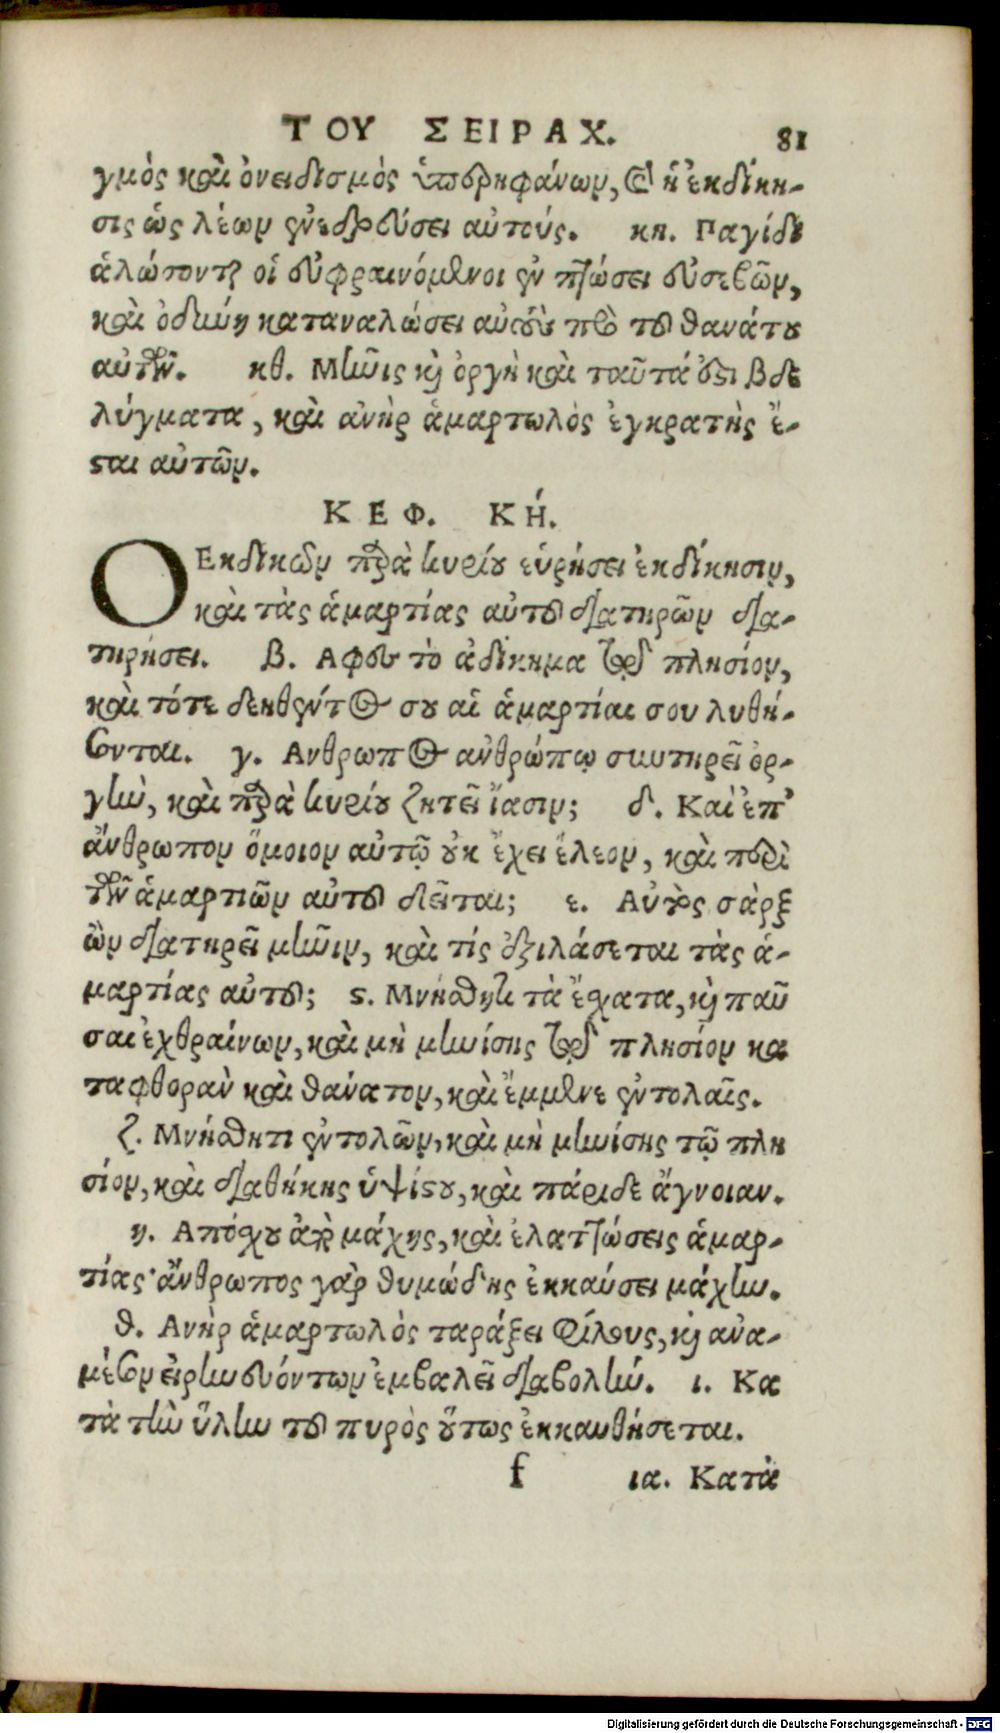 ΤΟΥ ΣΕΙΡΑΧ. 81
γμὸς καὶ ὀνειδισμὸς ὑπερηφάνων, καὶ ἡ ἐκδίκη-
σις ὡς λέων ἐνεδρεύσει αὐτούς. κη. Παγίδι
ἁλώσονται οἱ εὐφραινόμενοι ἐν πτώσει εὐσεβῶν,
καὶ ὀδύνη καταναλώσει αὐτοὺς πρὸ τοῦ θανάτου
αὐτῶν. κθ. Μῆνις καὶ ὀργὴ καὶ ταῦτά ἐστι βδε
λύγματα, καὶ ἀνὴρ ἁμαρτωλὸς ἐγκρατὴς ἔ-
σται αὐτῶν.
ΚΕΦ. ΚΉ.
Ο Εκδικῶν παρὰ κυρίου εὑρήσει ἐκδίκησιν,
καὶ τὰς ἁμαρτίας αὐτοῦ διατηρῶν δια-
τηρήσει. β. Αφες τὸ ἀδίκημα τῷ πλησίον,
καὶ τότε δεηθέντος σου αἱ ἁμαρτίαι σου λυθή-
σονται. γ. Ανθρωπος ἀνθρώπῳ συντηρεῖ ὀρ-
γὴν, καὶ παρὰ κυρίου ζητεῖ ἴασιν; δ. Καὶ ἐπ'
ἄνθρωπον ὅμοιον αὐτῷ οὐκ ἔχει ἔλεον, καὶ περὶ
τῶν ἁμαρτιῶν αὐτοῦ δεῖται; ε. Αὐτὸς σὰρξ
ὢν διατηρεῖ μῆνιν, καὶ τίς ἐξιλάσεται τὰς ἁ-
μαρτίας αὐτοῦ; ς. Μνήσθητι τὰ ἔσχατα, καὶ παῦ
σαι ἐχθραίνων, καὶ μὴ μηνίσῃς τῷ πλησίον κα
ταφθορὰν καὶ θάνατον, καὶ ἔμμενε ἐντολαῖς.
ζ. Μνήσθητι ἐντολῶν, καὶ μὴ μηνίσῃς τῷ πλη
σίον, καὶ διαθήκης ὑψίστου, καὶ πάριδε ἄγνοιαν.
η. Απόσχου ἀπὸ μάχης, καὶ ἐλαττώσεις ἁμαρ-
τίας· ἄνθρωπος γὰρ θυμώδης ἐκκαύσει μάχην.
θ. Ανὴρ ἁμαρτωλὸς ταράξει φίλους, καὶ ἀνα-
μέσον εἰρηνευόντων ἐμβαλεῖ διαβολήν. ι. Κα
τὰ τὴν ὕλην τοῦ πυρὸς οὕτως ἐκκαυθήσεται.
f ια. Κατὰ
Digitalisierung gefördert durch die Deutsche Forschungsgemeinschaft - DFG